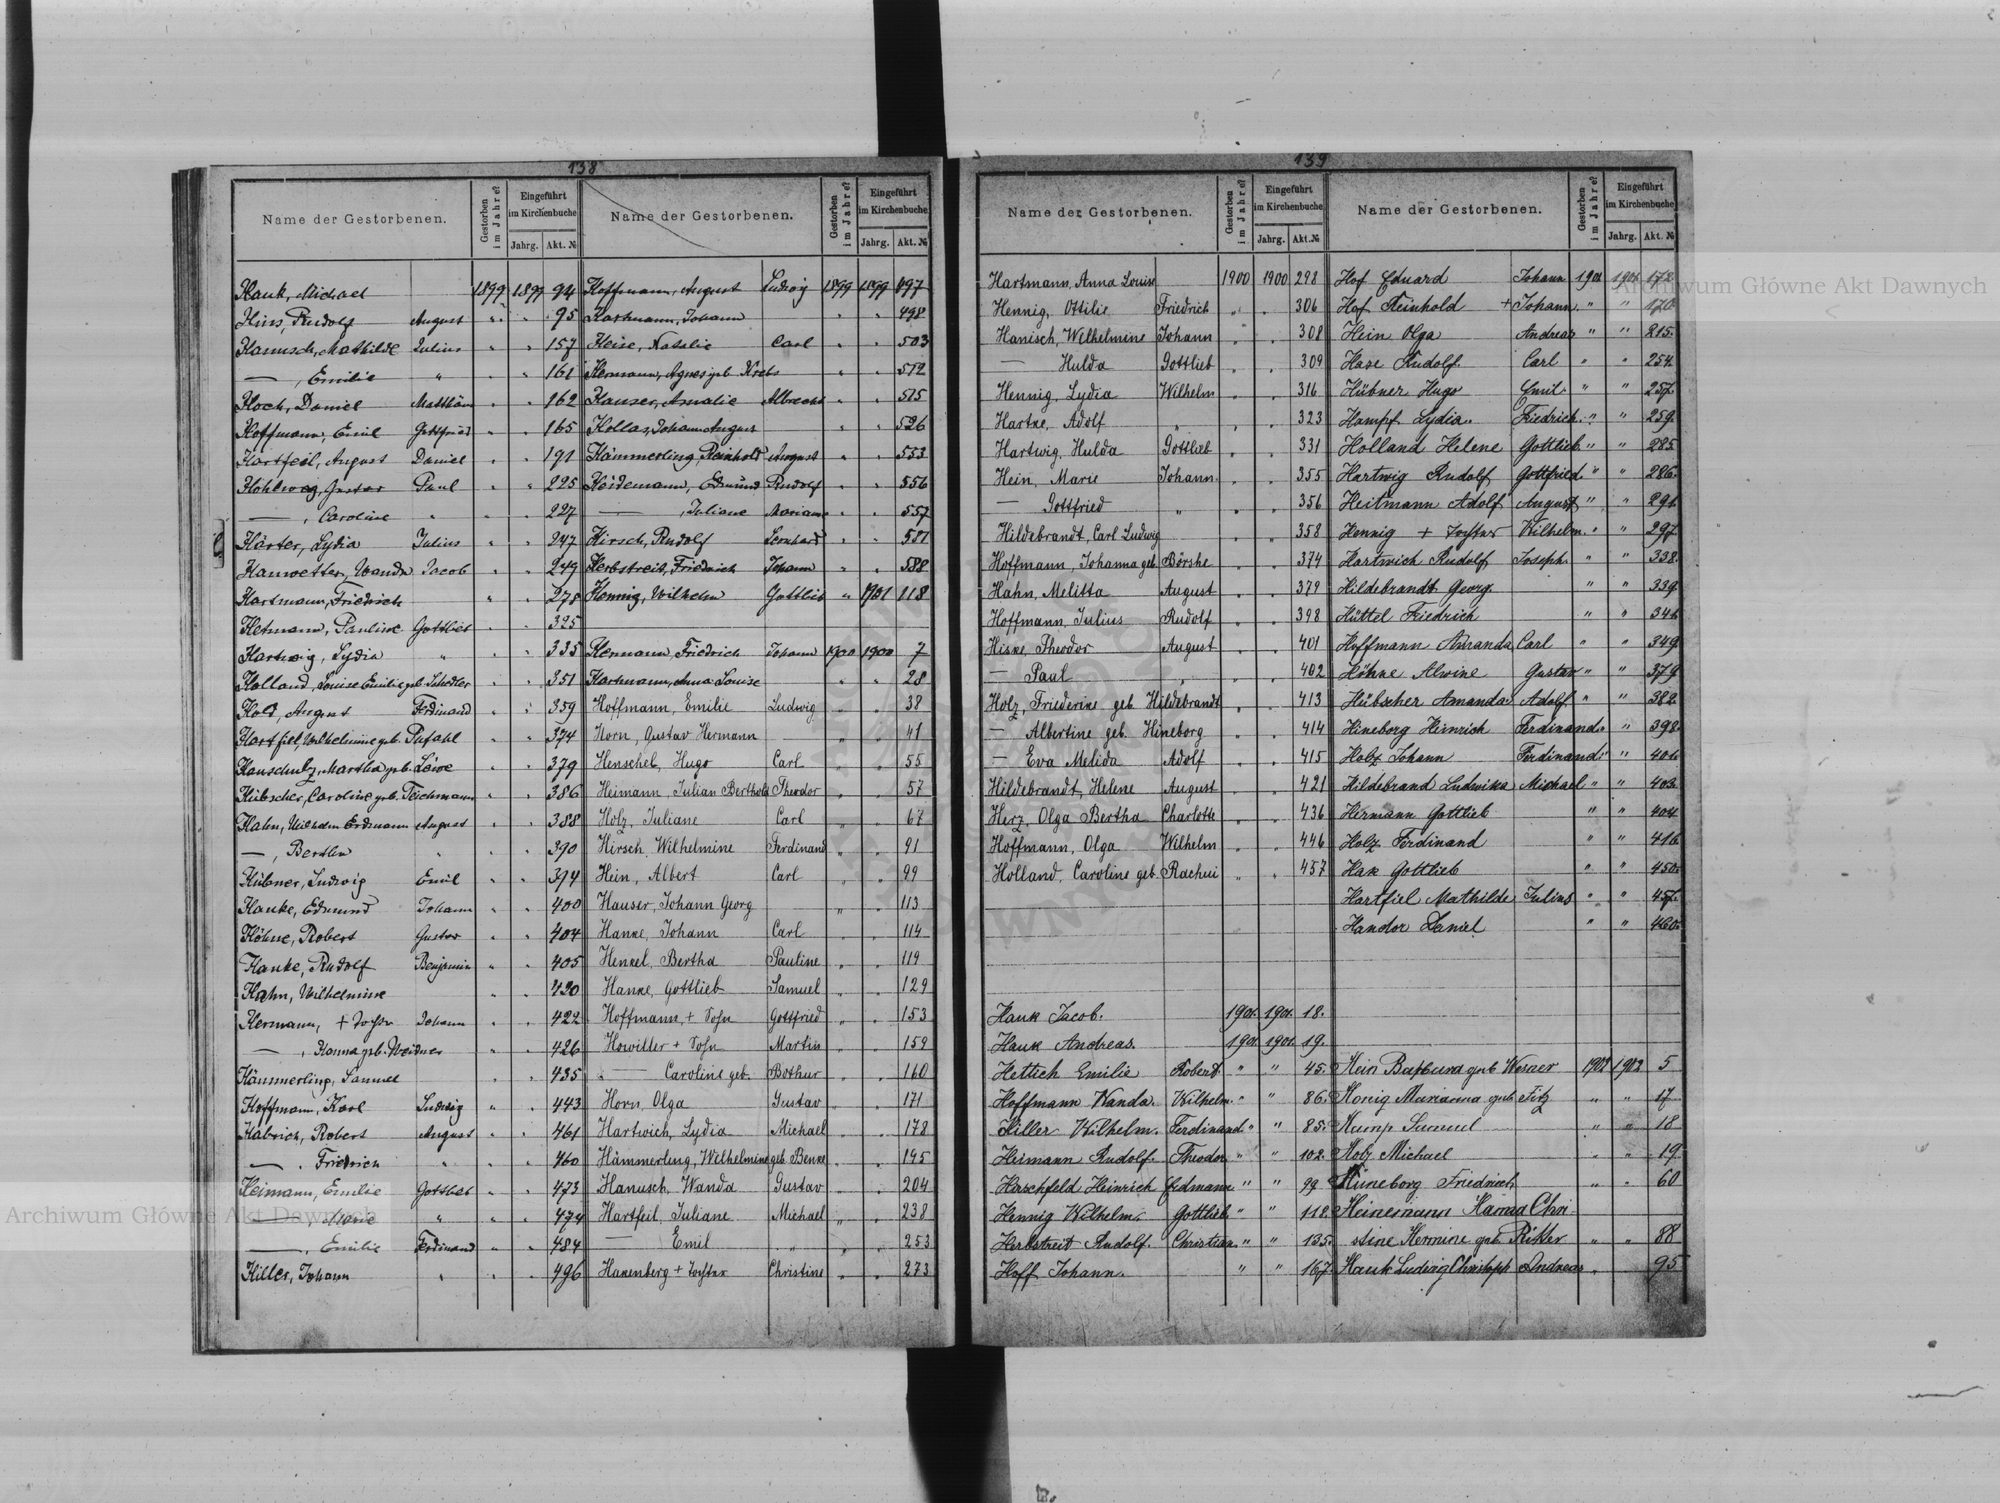 138
Name der Gestorbenen. Gestorben im Jahre? Eingeführt im Kirchenbuche Jahrg. Akt. № Name der Gestorbenen. Gestorben im Jahre? Eingeführt im Kirchenbuche Jahrg. Akt. №
Hauk, Michael 1899 1899 94
Hins, Rudolf August " " 95
Hanusch, Mathilde Julius " " 157
— , Emilie " " " 161
Hoch, Daniel Matthäus " " 162
Hoffmann, Emil Gottfried " " 165
Hartfeil, August Daniel " " 191
Hohlweg, Gustav Paul " " 225
— , Caroline " " " 227
Härter, Lydia Julius " " 247
Hauwetter, Wanda Jacob " " 249
Hartmann, Friedrich " " 278
Hetmann, Pauline Gottlieb " " 325
Hartwig, Lydia " " " 335
Holland, Louise Emilie geb. Schedler " " 351
August Ferdinand " " 359
Hartfiel, Wilhelmine geb. Pufahl " " 374
Hauschulz, Martha geb. Löwe " " 379
Hübscher, Caroline geb. Teichmann " " 386
Hahn, Wilhelm Erdmann August " " 388
— , Bertha " " " 390
Hübner, Ludwig Emil " " 394
Hanke, Edmund Johann " " 400
Höhne, Robert Gustav " " 404
Hanke, Rudolf Benjamin " " 405
Hahn, Wilhelmine " " 420
Hermann, + Tochter Johann " " 422
— , Hanna geb. Weidner " " 426
Hämmerling, Samuel " " 435
Hoffmann, Karl Ludwig " " 443
Habrich, Robert August " " 461
— , Friedrich " " " 460
Heimann, Emilie Gottlieb " " 473
— , Marie " " " 474
— , Emilie Ferdinand " " 484
Hiller, Johann " " 496
Hoffmann, August Ludwig 1899 1899 497
Hartmann, Johann " " 498
Heise, Natalie Carl " " 503
Hermann, Agnes geb. Krebs " " 512
Hauser, Amalie Albrecht " " 515
Hollas, Johann August " " 526
Hämmerling, Reinhold August " " 553
Heidemann, Edmund Rudolf " " 556
— , Juliane Mariane " " 557
Hirsch, Rudolf Leonhard " " 581
Herbstreit, Friedrich Johann " " 588
Hennig, Wilhelm Gottlieb " 1901 118
Hermann, Friedrich Johann 1900 1900 7
Hartmann, Anna Louise " " 28
Hoffmann, Emilie Ludwig " " 38
Horn, Gustav Hermann " " 41
Henschel, Hugo Carl " " 55
Heimann, Julian Berthold Theodor " " 57
Holz, Juliane Carl " " 67
Hirsch, Wilhelmine Ferdinand " " 91
Hein, Albert Carl " " 99
Hauser, Johann Georg " " 113
Hanke, Johann Carl " " 114
Henkel, Bertha Pauline " " 119
Hanke, Gottlieb Samuel " " 129
Hoffmann, + Sohn Gottfried " " 153
Howiller + Sohn Martin " " 159
— Caroline geb. Bothur " " 160
Horn, Olga Gustav " " 171
Hartwich, Lydia Michael " " 178
Hämmerling, Wilhelmine geb. Benke " " 195
Hanusch, Wanda Gustav " " 204
Hartfeil, Juliane Michael " " 238
— Emil " " " 253
Hakenberg + Tochter Christine " " 273
139
Name der Gestorbenen. Gestorben im Jahre? Eingeführt im Kirchenbuche Jahrg. Akt. № Name der Gestorbenen. Gestorben im Jahre? Eingeführt im Kirchenbuche Jahrg. Akt. №
Hartmann, Anna Louise 1900 1900 298
Hennig, Ottilie Friedrich " " 306
Hanisch, Wilhelmine Johann " " 308
— Hulda Gottlieb " " 309
Hennig, Lydia Wilhelm " " 316
Hartke, Adolf " " " 323
Hartwig, Hulda Gottlieb " " 331
Hein, Marie Johann " " 355
— Gottfried " " " 356
Hildebrandt, Carl Ludwig " " 358
Hoffmann, Johanna geb. Börshe " " 374
Hahn, Melitta August " " 379
Hoffmann, Julius Rudolf " " 398
Hiske, Theodor August " " 401
— Paul " " " 402
Holz, Friederike geb. Hildebrandt " " 413
— Albertine geb. Hineborg " " 414
— Eva Melida Adolf " " 415
Hildebrandt, Helene August " " 421
Herz, Olga Bertha Charlotte " " 436
Hoffmann, Olga Wilhelm " " 446
Holland, Caroline geb. Rachui " " 457
Hauk Jacob. 1901. 1901. 18.
Hauk Andreas. 1901. 1901. 19.
Hettich Emilie Robert " " 45.
Hoffmann Wanda. Wilhelm. " " 86.
Hiller Wilhelm. Ferdinand. " " 85.
Heimann Rudolf. Theodor " " 102.
Hirschfeld Heinrich Erdmann " " 99.
Hennig Wilhelm. Gottlieb. " " 118.
Herbstreit Rudolf. Christian. " " 135.
Hoff Johann. " " 167.
Hof Eduard Johann 1901. 1901. 172.
Hof Reinhold + Johann. " " 170.
Hein Olga Andreas " " 215.
Hase Rudolf. Carl " " 254.
Hübner Hugo Emil " " 257.
Hampf Lydia. Friedrich. " " 259.
Holland Helene Gottlieb. " " 285.
Hartwig Rudolf Gottfried. " " 286.
Heitmann Adolf August " " 291.
Hennig + Tochter Wilhelm. " " 297.
Hartwich Rudolf Joseph. " " 338.
Hildebrandt Georg. " " 339.
Hüttel Friedrich " " 341.
Hoffmann Amanda Carl " " 349.
Höhne Alwine Gustav " " 379
Hübscher Amanda Adolf. " " 382.
Hineborg Heinrich Ferdinand. " " 398.
Holz Johann Ferdinand. " " 401.
Hildebrand Ludwika Michael " " 403.
Hermann Gottlieb " " 404.
Holz Ferdinand " " 416.
Hak Gottlieb " " 450.
Hartfiel Mathilde Julius " " 457.
Handor Daniel " " 460.
Hein Barbara geb. Werner 1902 1902 5
Honig Marianna geb. Fitz " " 17
Hamp Samuel " " 18
Holz Michael " " 19.
Hineborg Friedrich " " 60
Heinemann Hanna Chri-
stine Hermine geb. Ritter " " 88
Hauk Ludwig Christoph Andreas " 95
Archiwum Główne Akt Dawnych
Archiwum Główne Akt Dawnych